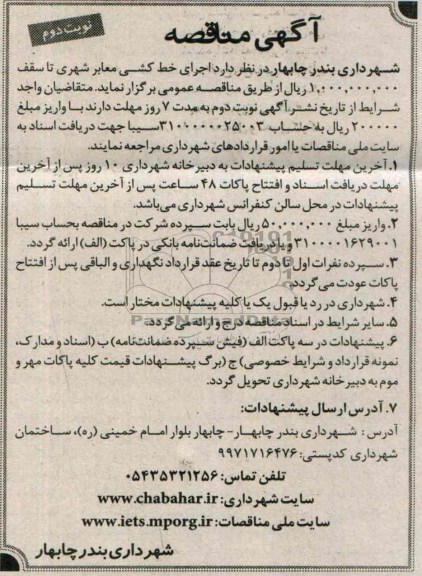 نوبت دوم
آگهی مناقصه
شهرداری بندر چابهار در نظر دارد اجرای خط کشی معابر شهری تا سقف
۱,۰۰۰,۰۰۰,۰۰۰ ریال از طریق مناقصه عمومی برگزار نماید. متقاضیان واجد
شرایط از تاریخ نشر آگهی نوبت دوم به مدت ۷ روز مهلت دارند با واریز مبلغ
۲۰۰۰۰۰ ریال به حساب ۳۱۰۰۰۰۰۰۲۵۰۰۳ سیبا جهت دریافت اسناد به
سایت ملی مناقصات یا امور قراردادهای شهرداری مراجعه نمایند.
۱. آخرین مهلت تسلیم پیشنهادات به دبیرخانه شهرداری ۱۰ روز پس از آخرین
مهلت دریافت اسناد و افتتاح پاکات ۴۸ ساعت پس از آخرین مهلت تسلیم
پیشنهادات در محل سالن کنفرانس شهرداری می‌باشد.
۲. واریز مبلغ ۵۰,۰۰۰,۰۰۰ ریال بابت سپرده شرکت در مناقصه بحساب سیبا
۳۱۰۰۰۰۱۶۲۹۰۰۱ و یا دریافت ضمانت‌نامه بانکی در پاکت (الف) ارائه گردد.
۳. سپرده نفرات اول تا دوم تا تاریخ عقد قرارداد نگهداری و الباقی پس از افتتاح
پاکات عودت می‌گردد.
۴. شهرداری در رد یا قبول یک یا کلیه پیشنهادات مختار است.
۵. سایر شرایط در اسناد مناقصه درج و ارائه می‌گردد.
۶. پیشنهادات در سه پاکت الف (فیش سپرده ضمانت‌نامه) ب (اسناد و مدارک،
نمونه قرارداد و شرایط خصوصی) ج (برگ پیشنهادات قیمت کلیه پاکات مهر و
موم به دبیرخانه شهرداری تحویل گردد.
۷. آدرس ارسال پیشنهادات:
آدرس: شهرداری بندر چابهار- چابهار بلوار امام خمینی (ره)، ساختمان
شهرداری کدپستی: ۹۹۷۱۷۱۶۴۷۶
تلفن تماس: ۰۵۴۳۵۳۲۱۲۵۶
سایت شهرداری: www.chabahar.ir
سایت ملی مناقصات: www.iets.mporg.ir
شهرداری بندر چابهار